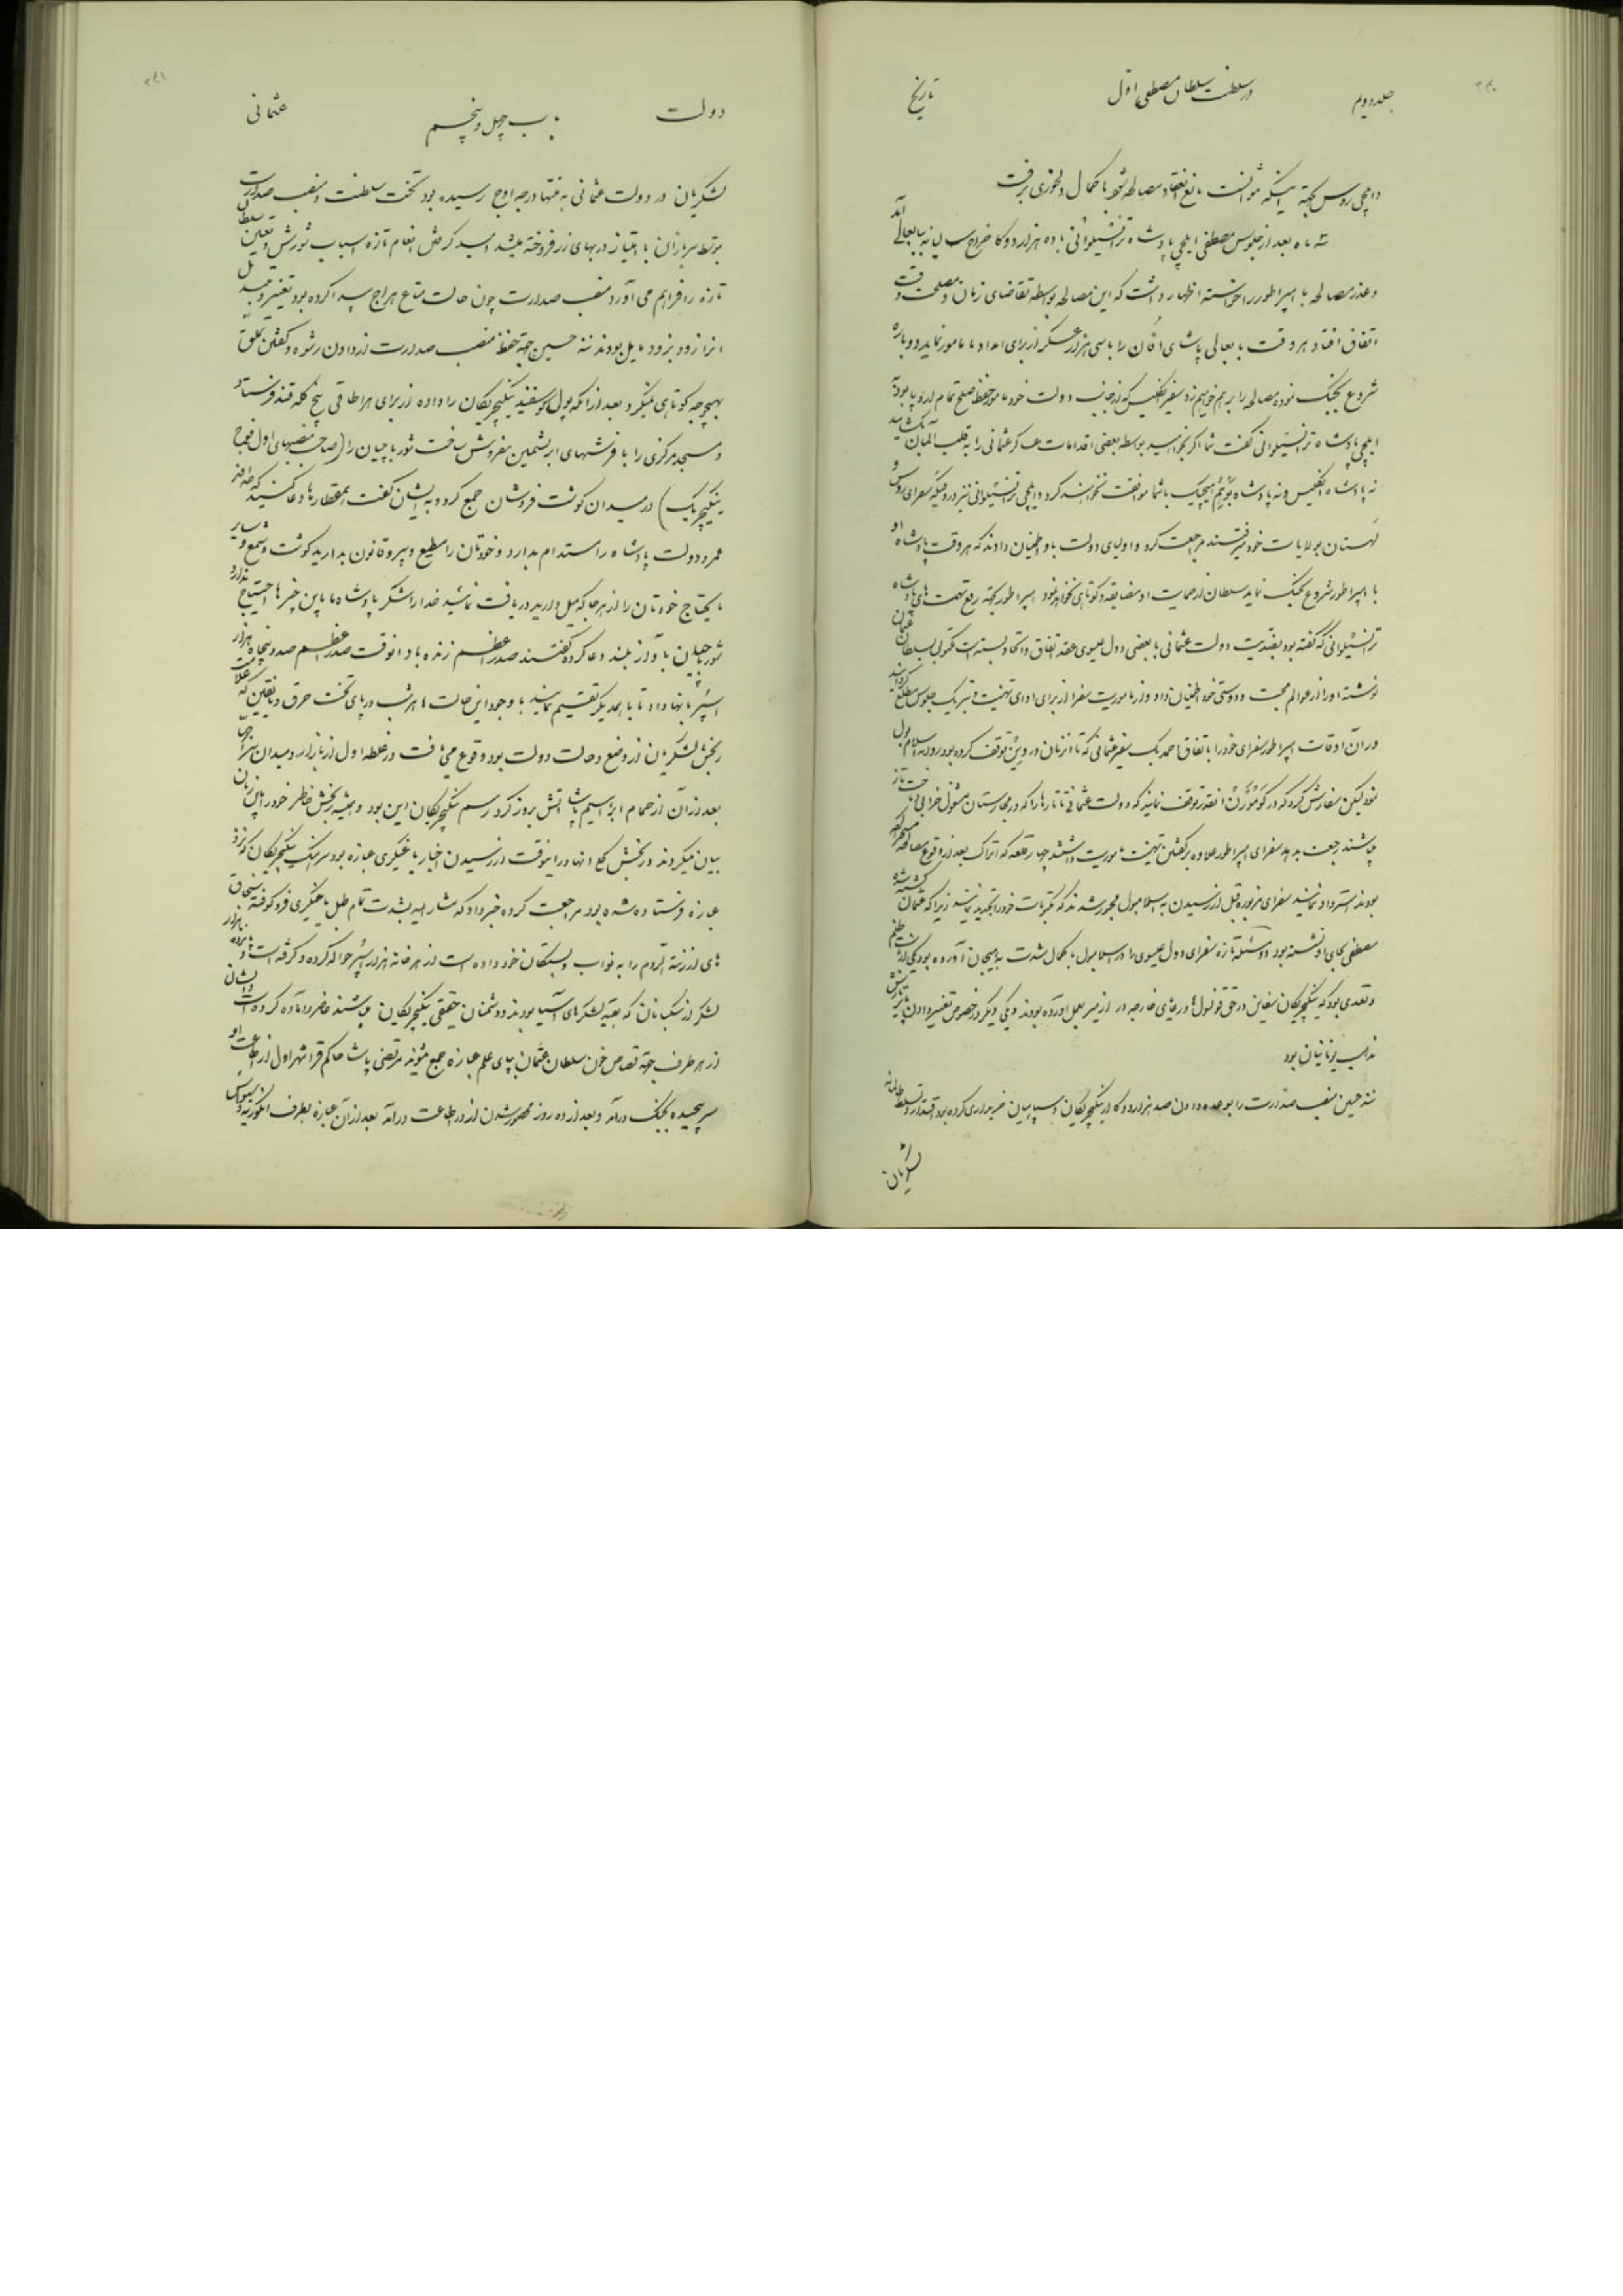 جلد دویم در سلطنت سلطان مصطفی اول تاریخ
و ایلچی روس بجهة اینکه نتوانست مانع انعقاد مصالحه شود با کمال دلخوری برفت
سه ماه بعد از جلوس مصطفی ایلچی پادشاه ترانسیلوانی با ده هزار دوکا خراج سالیانه ببابعالی آمد
و عذر مصالحه با امپراطور را خواسته اظهار داشت که این مصالحه بواسطه تقاضای زمان و مصلحت وقت
اتفاق افتاد هر وقت بابعالی پاشای را با سی هزار عسکر از برای امداد ما مامور نماید دوباره
شروع بجنگ نموده مصالحه را برهم خواهیم زد سفیر انگلیس که از جانب دولت خود مامور حفظ صلح تمام اروپا بود به
ایلچی پادشاه ترانسیلوانی گفت شما اگر بخواهید بواسطه بعضی اقدامات عساکر عثمانی را به قلب آلمان بکشانید
نه پادشاه انگلیس و نه پادشاه هیچیک با شما موافقت نخواهند کرد و ایلچی ترانسیلوانی نیز در وقتیکه سفرای روس و
لهستان بولایات خود میرفتند مراجعت کرد و اولیای دولت باو اطمینان دادند که هر وقت پادشاه او
با امپراطور شروع بجنگ نماید سلطان از حمایت او مضایقه و کوتاهی نخواهد نمود امپراطور بجهة رفع تهمت های پادشاه
ترانسیلوانی که گفته بود بضدیت دولت عثمانی با بعضی دول عیسوی عقد اتفاق و اتحاد بسته است مکتوبی بسلطان عثمان
نوشته او را از عوالم محبت و دوستی خود اطمینان داد و از ماموریت سفرا از برای ادای تهنیت و تبریک جلوس مطلع گردانید
در آن اوقات امپراطور سفرای خود را باتفاق احمد بیک سفیر عثمانی که تا آنزمان در وین توقف کرده بود روانه اسلامبول
نمود لیکن سفارش کرد که در کومورن آنقدر توقف نمایند که دولت عثمانی تاتارها را که در مجارستان مشغول خرابی و تاخت و تاز
میباشند رجعت بدهد سفرای امپراطور علاوه بر گفتن تهنیت ماموریت داشتند چهار قلعه که اتراک بعد از وقوع مصالحه مسخر کرده
بودند استرداد نمایند سفرای مزبوره قبل از رسیدن به اسلامبول مجبور شدند که مکتوبات خود را تجدید نمایند زیرا که عثمان کشته شده
مصطفی بجای او نشسته بود دو مسئله تازه سفرای دول عیسوی را در اسلامبول بکمال شدت بهیجان آورده بود یکی از بابت ظلم
و تعدی بود که ینگیچریکان سفاین در حق قونسول ها و رعایای خارجه در ازمیر بعمل آورده بودند و یکی دیگر در خصوص تغییر دادن
مذاهب یونانیان بود
حسین منصب صدارت را بوعده دادن صد هزار دوکا از ینگیچریکان و سپاهیان خریداری کرده بود اقتدار و تسلط ظالمانه
لشکریان
دولت باب چهل و پنجم عثمانی
لشکریان در دولت عثمانی به منتها درجه اوج رسیده بود تخت سلطنت و منصب صدارت
توسط سربازان با امتیاز در بهای زر فروخته میشد امید گرفتن انعام تازه اسباب شورش و تعیین سلطان
تازه را فراهم می آورد منصب صدارت چون حالت متاع هراج پیدا کرده بود تغییر و تبدیل
آنرا زود بزود مایل بودند حسین جهة حفظ منصب صدارت از دادن رشوه و گفتن تملق
بهیچوجه کوتاهی نمیکرد بعد از آنکه پول گوسفند ینگیچریکان را داده از برای هر اطاقی پنج کله قند فرستاد
و مسجد مرکزی را با فرشهای ابریشمین مفروش ساخت شورباچیان را (صاحب منصبهای اول فوج
ینگیچریک) در میدان گوشت فروشان جمع کرد و بایشان گفت همقطارها دعا کنید که خداوند
عمر و دولت پادشاه را مستدام بدارد و خودتان را مطیع و پیرو قانون بدارید گوشت و شمع و سایر
مایحتاج خودتان را از هر جا که میل دارید دریافت نمائید خدا را شکر پادشاه ما باین چیزها احتیاج ندارد
شورباچیان با آواز بلند دعا کرده گفتند صدر اعظم زنده باد آنوقت صدر اعظم صد و پنجاه هزار
اسپر بآنها داد تا با همدیگر تقسیم نمایند با وجود این حالت ها هر شب در پای تخت حرق و یقین که علامت
رنجش لشکریان از وضع و حالت دولت بود وقوع می یافت در غلطه اول از بازار و میدان
بعد از آن از حمام ابراهیم پاشا آتش بروز کرد رسم ینگیچریکان این بود همیشه رنجش خاطر خود را باین زبان
بیان میکردند و رنجش کلی آنها در اینوقت از رسیدن اخبار یاغیگری عبازه بود سرهنگ ینگیچریکان که نزد
عبازه فرستاده شده بود مراجعت کرده خبر داد که مشارالیه بشدت تمام طبل یاغیگری فرو کوفته سنجاق
های ارزنة الروم را به نواب و بستگان خود داده است از هر خانه هزار اسپر حواله کرده و گرفته است
لشکر از سکبانان که بقیه لشکرهای آسیا بودند و دشمنان حقیقی ینگیچریکان میباشند حاضر و آماده کرده است
از هر طرف بجهة قصاص خون سلطان عثمان بپای علم عبازه جمع میشوند مرتضی پاشا حاکم قراشهر اول از اطاعت او
سر پیچیده بجنگ درآمد و بعد از ده روز محصور شدن از در اطاعت درآمد بعد از آن عبازه بطرف انگوریه و سیواس